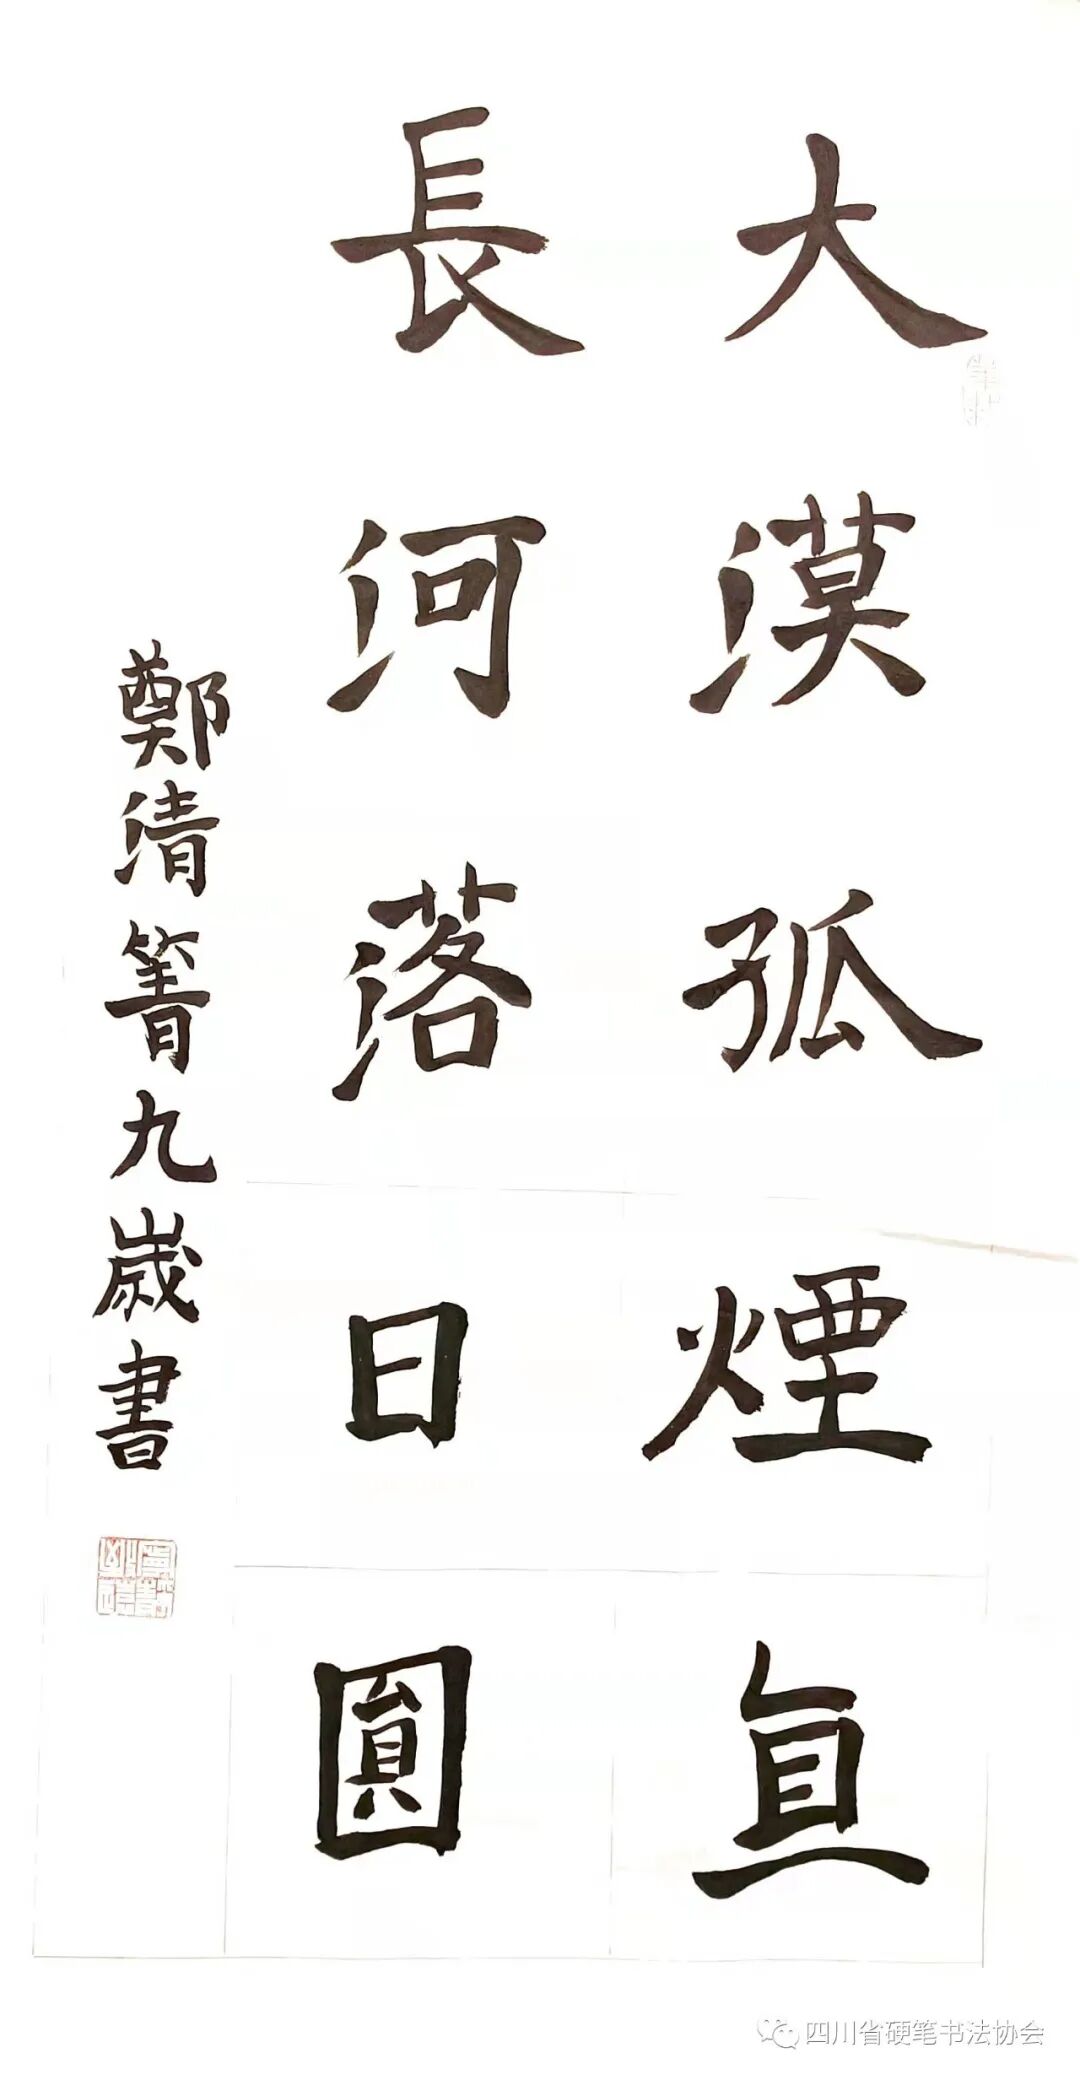 大漠孤煙直
長河落日圓
鄭清箐九歲書
四川省硬笔书法协会